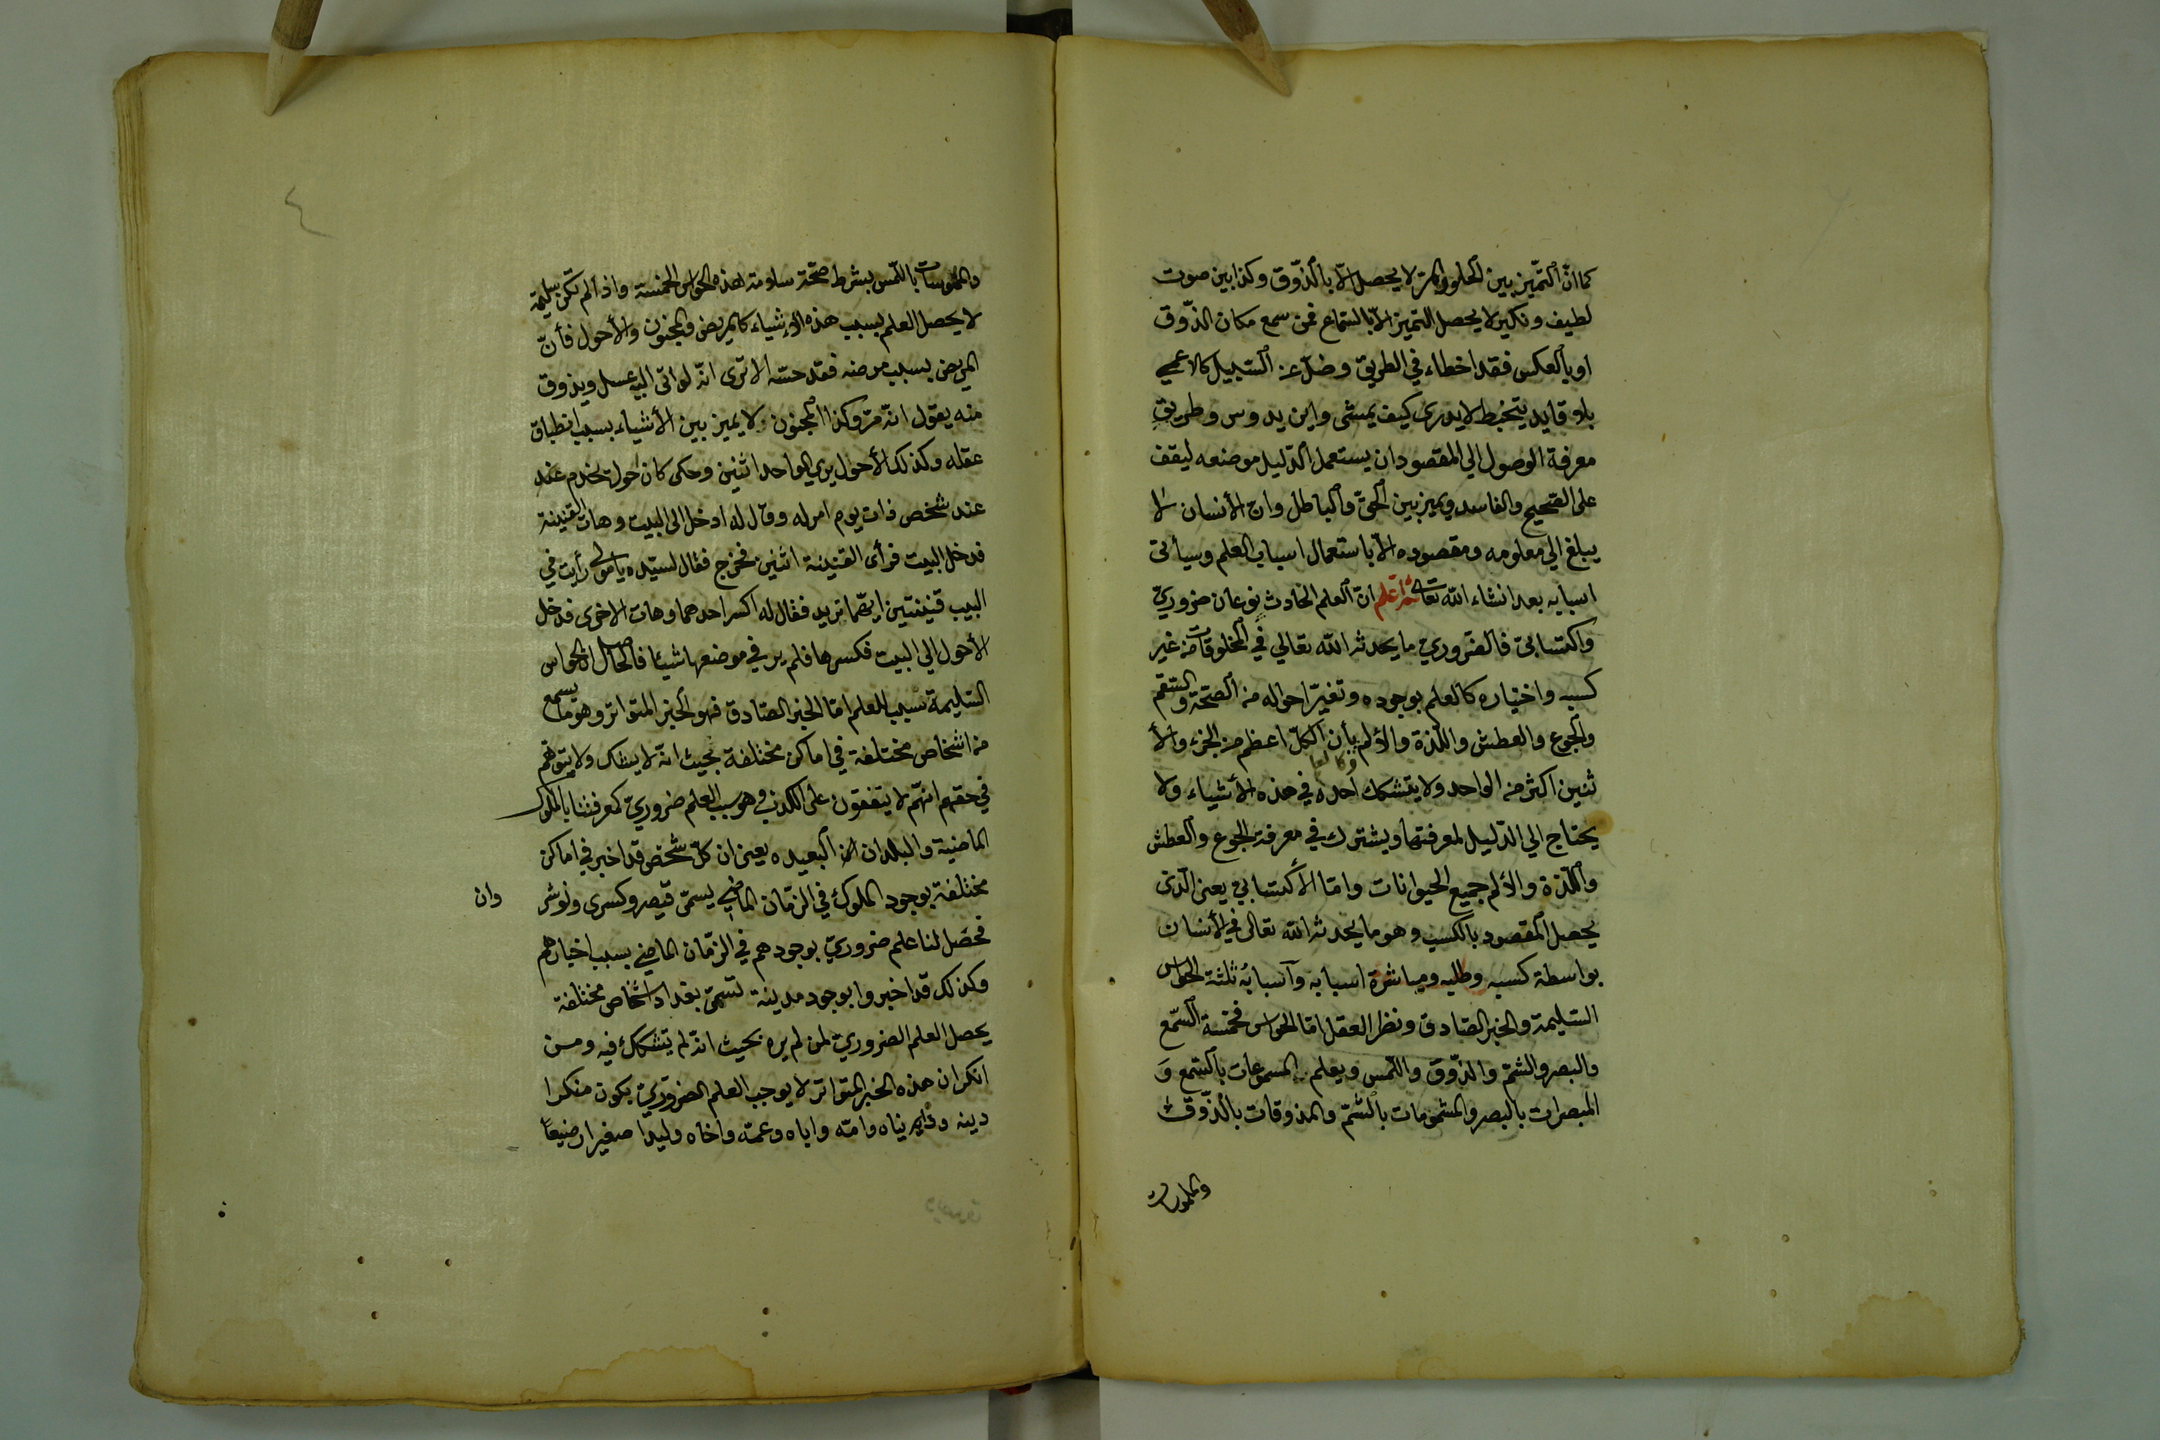 كما انّ التّميز بين الحلو والمرّ لا يحصل الّا بالذّوق وكذا بين صوت
لطيف ونكير لا يحصل التميز الّا بالسّماع فمن سمع مكان الذّوق
او بالعكس فقد اخطاء في الطريق وضلّ عن السّبيل كالاعمي
بلا قايد يتخبط لا يدري كيف يمشى واين يدوس وطريق
معرفة الوصول الي المقصود ان يستعمل الدّليل موضعه ليقف
على الصّحيح والفاسد ويميز بين الحقّ والباطل وان الأنسان لا
يبلغ الي معلومه ومقصوده الّا باستعمال اسباب العلم وسيأتى
اسبابه بعد انشاء الله تعالى ثم اعلم انّ العلم الحادث نوعان ضروريّ
واكتسابىّ فالضّروريّ ما يحدثه الله تعالي في المخلوقات من غير
كسبه واختياره كالعلم بوجوده وتغيّر احواله من الصّحة والسّقم
والجوع والعطش واللّذة والألم وكالعلم بأن الكلّ اعظم من الجزء والأ
ثنين اكثر من الواحد ولا يتشكك احد في هذه الأشياء ولا
يحتاج الي الدّليل لمعرفتها ويشترك في معرفة الجوع والعطش
واللّذة والألم جميع الحيوانات وامّا الأكتسابيّ يعنى الّذى
يحصل المقصود بالكسب وهو ما يحدثه الله تعالى في الأنسان
بواسطة كسبه وطلبه ومباشرة اسبابه وأسبابُه ثلثة الحواس
السّليمة والخبر الصّادق ونظر العقل امّا الحواس فخمسة السّمع
والبصر والشمّ والذّوق واللّمس ويعلم المسموعات بالسّمع وَ
المبصرات بالبصر والمشمومات بالشّمّ والمذوقات بالذّوق
والملموسات
والملموسات باللّمس بشرط صحّة سلامة هذه الحواس الخمسة واذا لم تكن سليمة
لا يحصل العلم بسبب هذه الاشياء كالمريض والمجنون والأحول فأنّ
المريض بسبب مرضه فقد حسّه الا ترى انّه لو اتى اليه عسل ويذوق
منه يقول انّه مرّ وكذا المجنون لا يميز بين الأشياء بسبب انطباق
عقله وكذلك الأحول يرى الواحد اثنين وحكى كان احول يخدم عند
عند شخص ذات يوم امر له وقال له ادخل الى البيت وهات القنينة
فدخل البيت فرأى القنينة اثنين فخرج فقال لسيّده يا مولى رأيت في
البيت قنينتين ايّهما تريد فقال له اكسر احدهما وهات الاخرى فدخل
الأحول الي البيت فكسرها فلم ير في موضعها شيئا فالحاصل ان الحواس
السّليمة سبب للعلم امّا الخبر الصّادق فهو الخبر المتواتر وهو ما يسمع
من اشخاص مختلفة في اماكن مختلفة بحيث انّه لا يشك ولا يتوهّم
في حقهم انهّم لا يتفقون على الكذب وهو سبب العلم ضروريّ كمعرفتنا بالملوك
الماضية والبلدان البعيده يعنى ان كلّ شخص قد اخبر في اماكن
مختلفة بوجود الملوك في الزّمان الماضي يسمّى قيصر وكسرى ونوشر
وان
فحصّل لنا علم ضروريّ بوجودهم في الزّمان الماضي بسبب اخبارهم
وكذلك قد اخبروا بوجود مدينة تسمّى بغداد اشخاص مختلفة
يحصل العلم الضروريّ لمن لم يره بحيث انّه لم يتشكك فيه ومن
انكر ان هذه الخبر المتواتر لا يوجب العلم الضّروريّ يكون منكرا
دينه ودنياه وامّه واباه وعمّه واخاه وليدا صغيرا رضيعاً